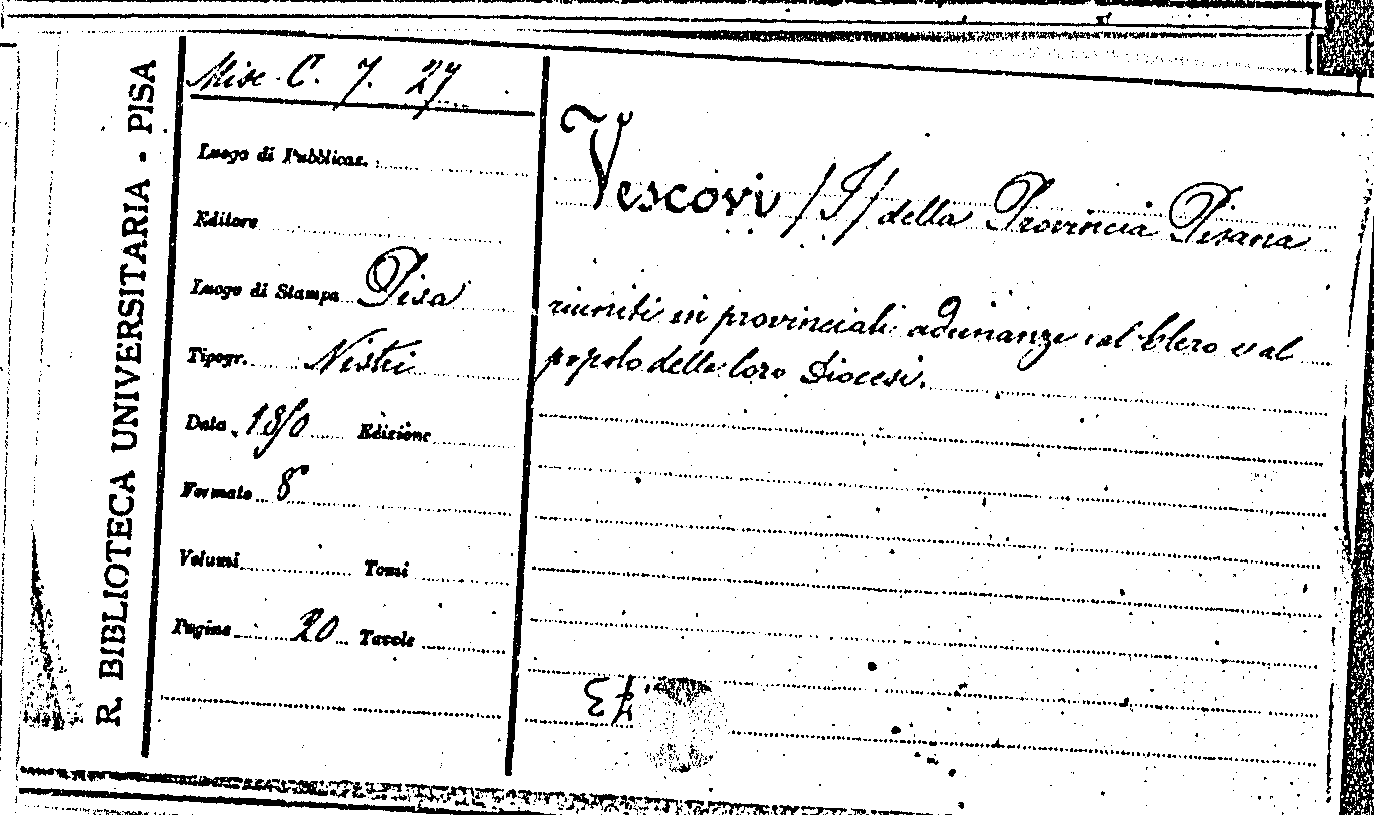 R. BIBLIOTECA UNIVERSITARIA - PISA
Misc. C. 7. 27
Luogo di Pubblicaz.
Editore
Luogo di Stampa Pisa
Tipogr. Nistri
Data 1850 Edizione
Formato 8°
Volumi Tomi
Pagine 20 Tavole
Vescovi /I/ della Provincia Pisana
riuniti in provinciali adunanze al Clero e al
popolo delle loro Diocesi.